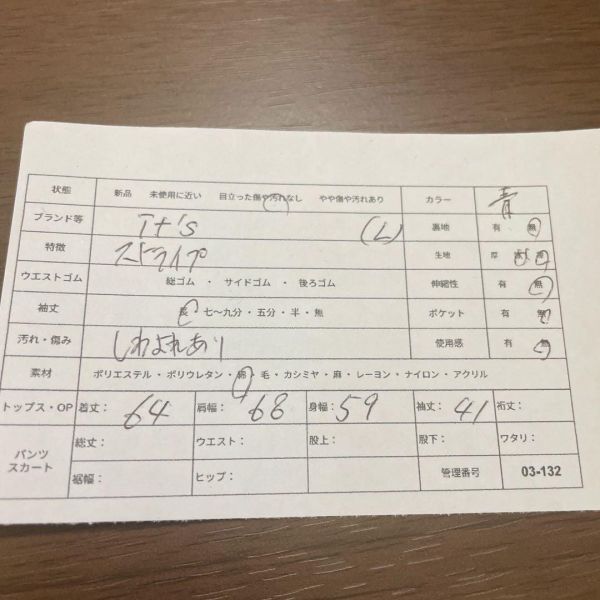 状態 新品 未使用に近い 目立った傷や汚れなし やや傷や汚れあり カラー 青
ブランド等 It's (L) 裏地 有 無
特徴 ストライプ 生地 厚 薄
ウエストゴム 総ゴム ・ サイドゴム ・ 後ろゴム 伸縮性 有 無
袖丈 長・七〜九分・五分・半・無 ポケット 有 無
汚れ・傷み しわよれあり 使用感 有 無
素材 ポリエステル・ポリウレタン・綿・毛・カシミヤ・麻・レーヨン・ナイロン・アクリル
トップス・OP 着丈: 64 肩幅: 68 身幅: 59 袖丈: 41 裄丈:
パンツ スカート 総丈: ウエスト: 股上: 股下: ワタリ:
裾幅: ヒップ: 管理番号 03-132